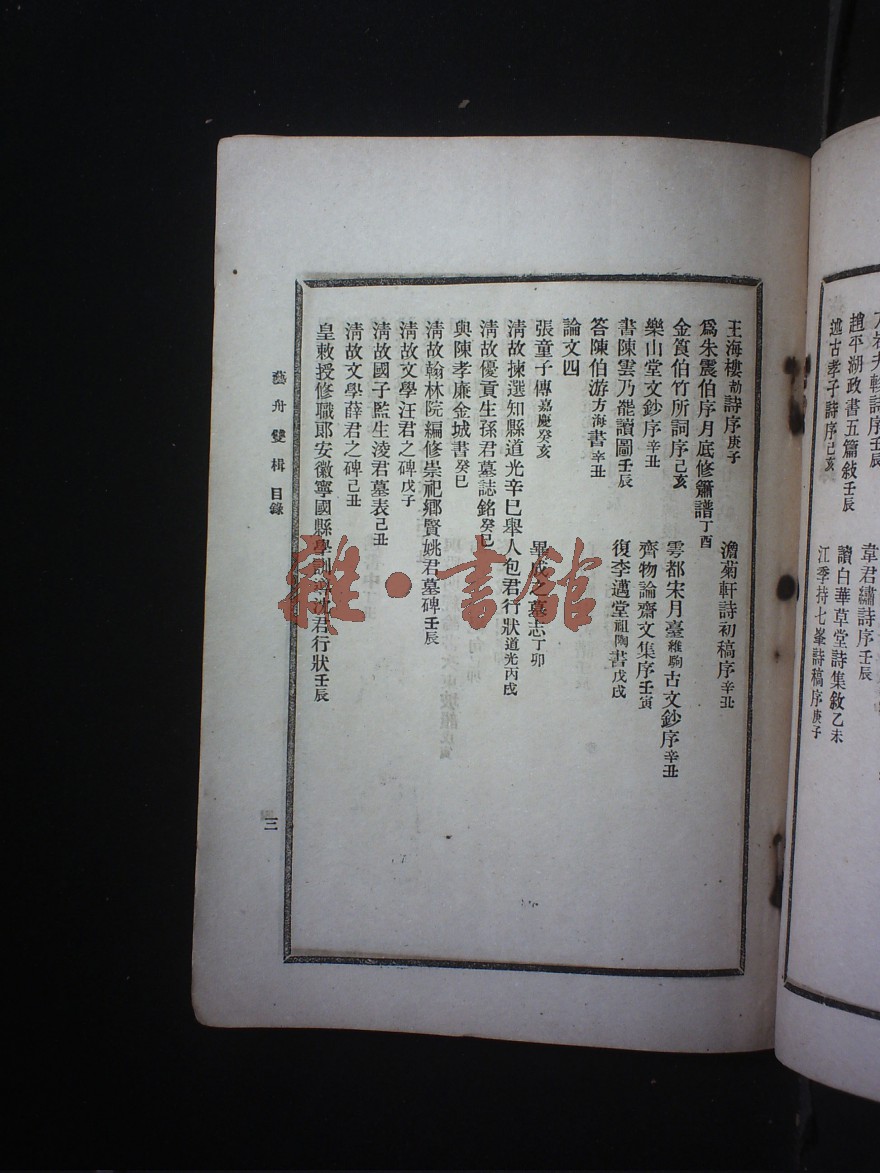 方彥夫輓詩序壬辰
韋君繡詩序壬辰
趙平湖政書五篇敘壬辰
讀白華草堂詩集敘乙未
述古孝子詩序己亥
江季持七峯詩稿序庚子
王海樓勃詩序庚子
澹菊軒詩初稿序辛丑
爲朱震伯序月底修簫譜丁酉
金筤伯竹所詞序己亥
雩都宋月臺維駒古文鈔序辛丑
樂山堂文鈔序辛丑
齊物論齋文集序壬寅
書陳雲乃罷讀圖壬辰
復李邁堂祖陶書戊戌
答陳伯游方海書辛丑
論文四
張童子傳嘉慶癸亥
畢成之墓志丁卯
淸故揀選知縣道光辛巳舉人包君行狀道光丙戌
淸故優貢生孫君墓誌銘癸巳
與陳孝廉金城書癸巳
淸故翰林院編修崇祀鄉賢姚君墓碑壬辰
淸故文學汪君之碑戊子
淸故國子監生淩君墓表己丑
淸故文學薛君之碑己丑
皇敕授修職郞安徽寧國縣學訓導沈君行狀壬辰
藝舟雙楫 目錄
三
雜·書館